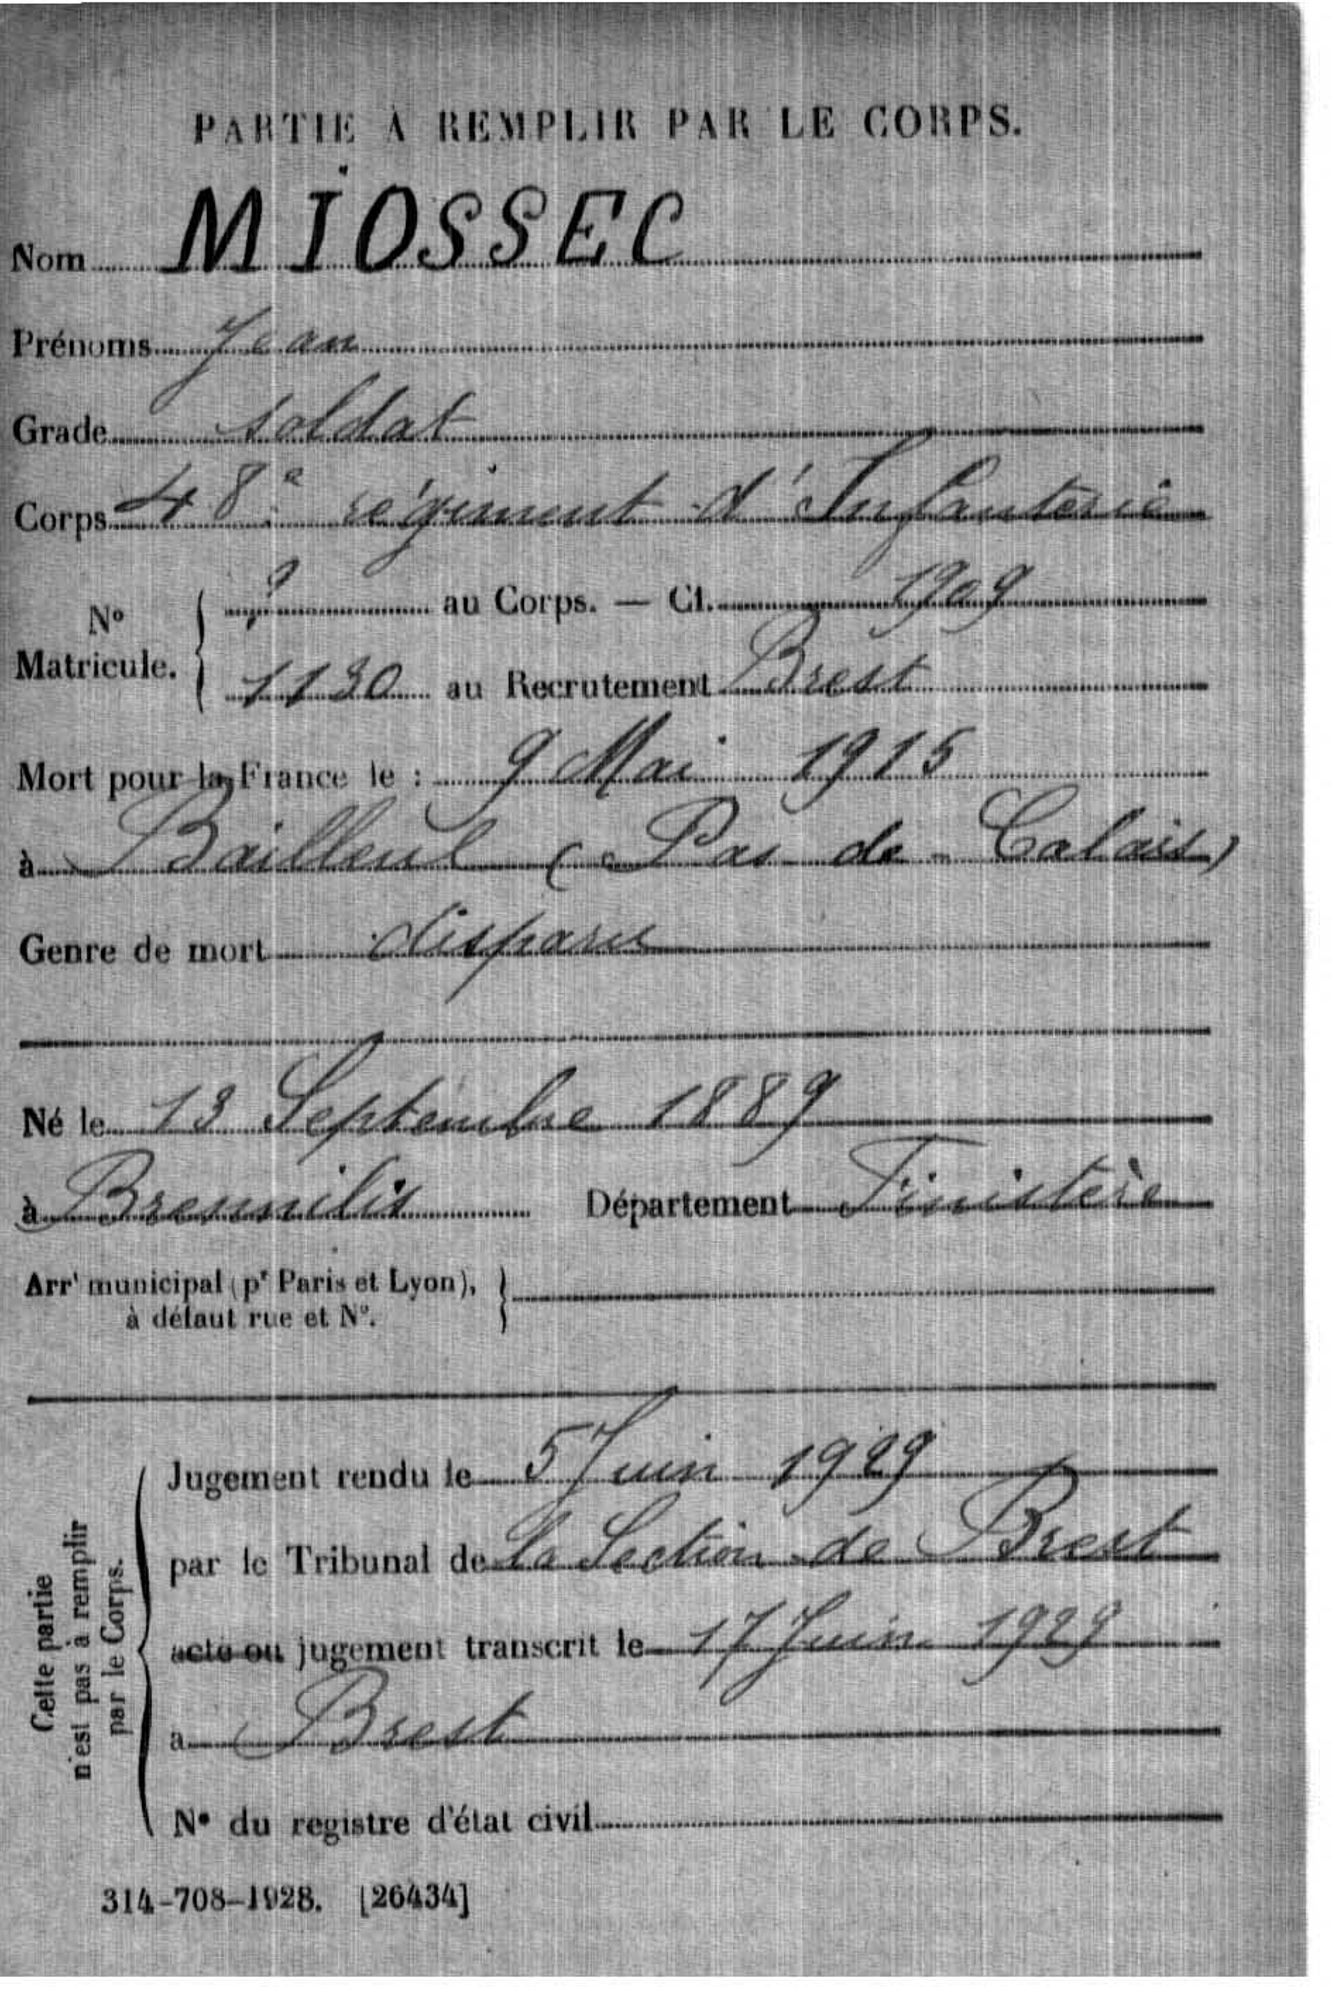 PARTIE À REMPLIR PAR LE CORPS.
Nom MIOSSEC
Prénoms Jean
Grade soldat
Corps 48e régiment d'Infanterie
No ? au Corps. — Cl. 1909
Matricule. 1130 au Recrutement Brest
Mort pour la France le : 9 Mai 1915
à Bailleul (Pas de Calais)
Genre de mort disparu
Né le 13 Septembre 1889
à Brennilis Département Finistère
Arrt municipal (pr Paris et Lyon),
à défaut rue et No.
Cette partie
n'est pas à remplir
par le Corps.
Jugement rendu le 5 Juin 1929
par le Tribunal de la Section de Brest
acte ou jugement transcrit le 17 Juin 1929
à Brest
No du registre d'état civil
314-708-1928. [26434]